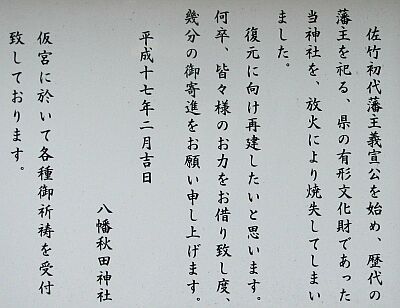 佐竹初代藩主義宣公を始め、歴代の
藩主を祀る、県の有形文化財であった
当神社を、放火により焼失してしまい
ました。
復元に向け再建したいと思います。
何卒、皆々様のお力をお借り致し度、
幾分の御寄進をお願い申し上げます。
平成十七年二月吉日
八幡秋田神社
仮宮に於いて各種御祈祷を受付
致しております。